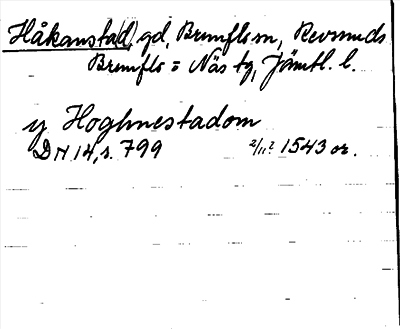 Håkanstad, gd, Brunflo sn, Revsunds
Brunflo = Näs tg, Jämtl. l.
y Hoghnestadom
DN 14, s. 799 2/11? 1543 or.